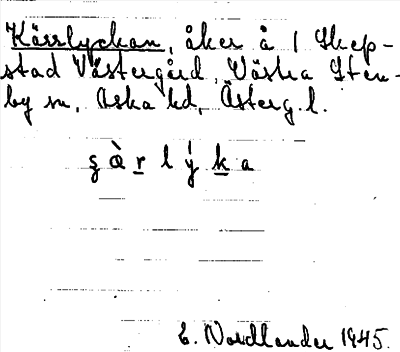 Kärrlyckan, åker å 1 Skep-
stad Västergård, Västra Sten-
by sn, Aska hd, Österg. l.
ȿ æ̀ r l ý k a
E. Nordlander 1945.